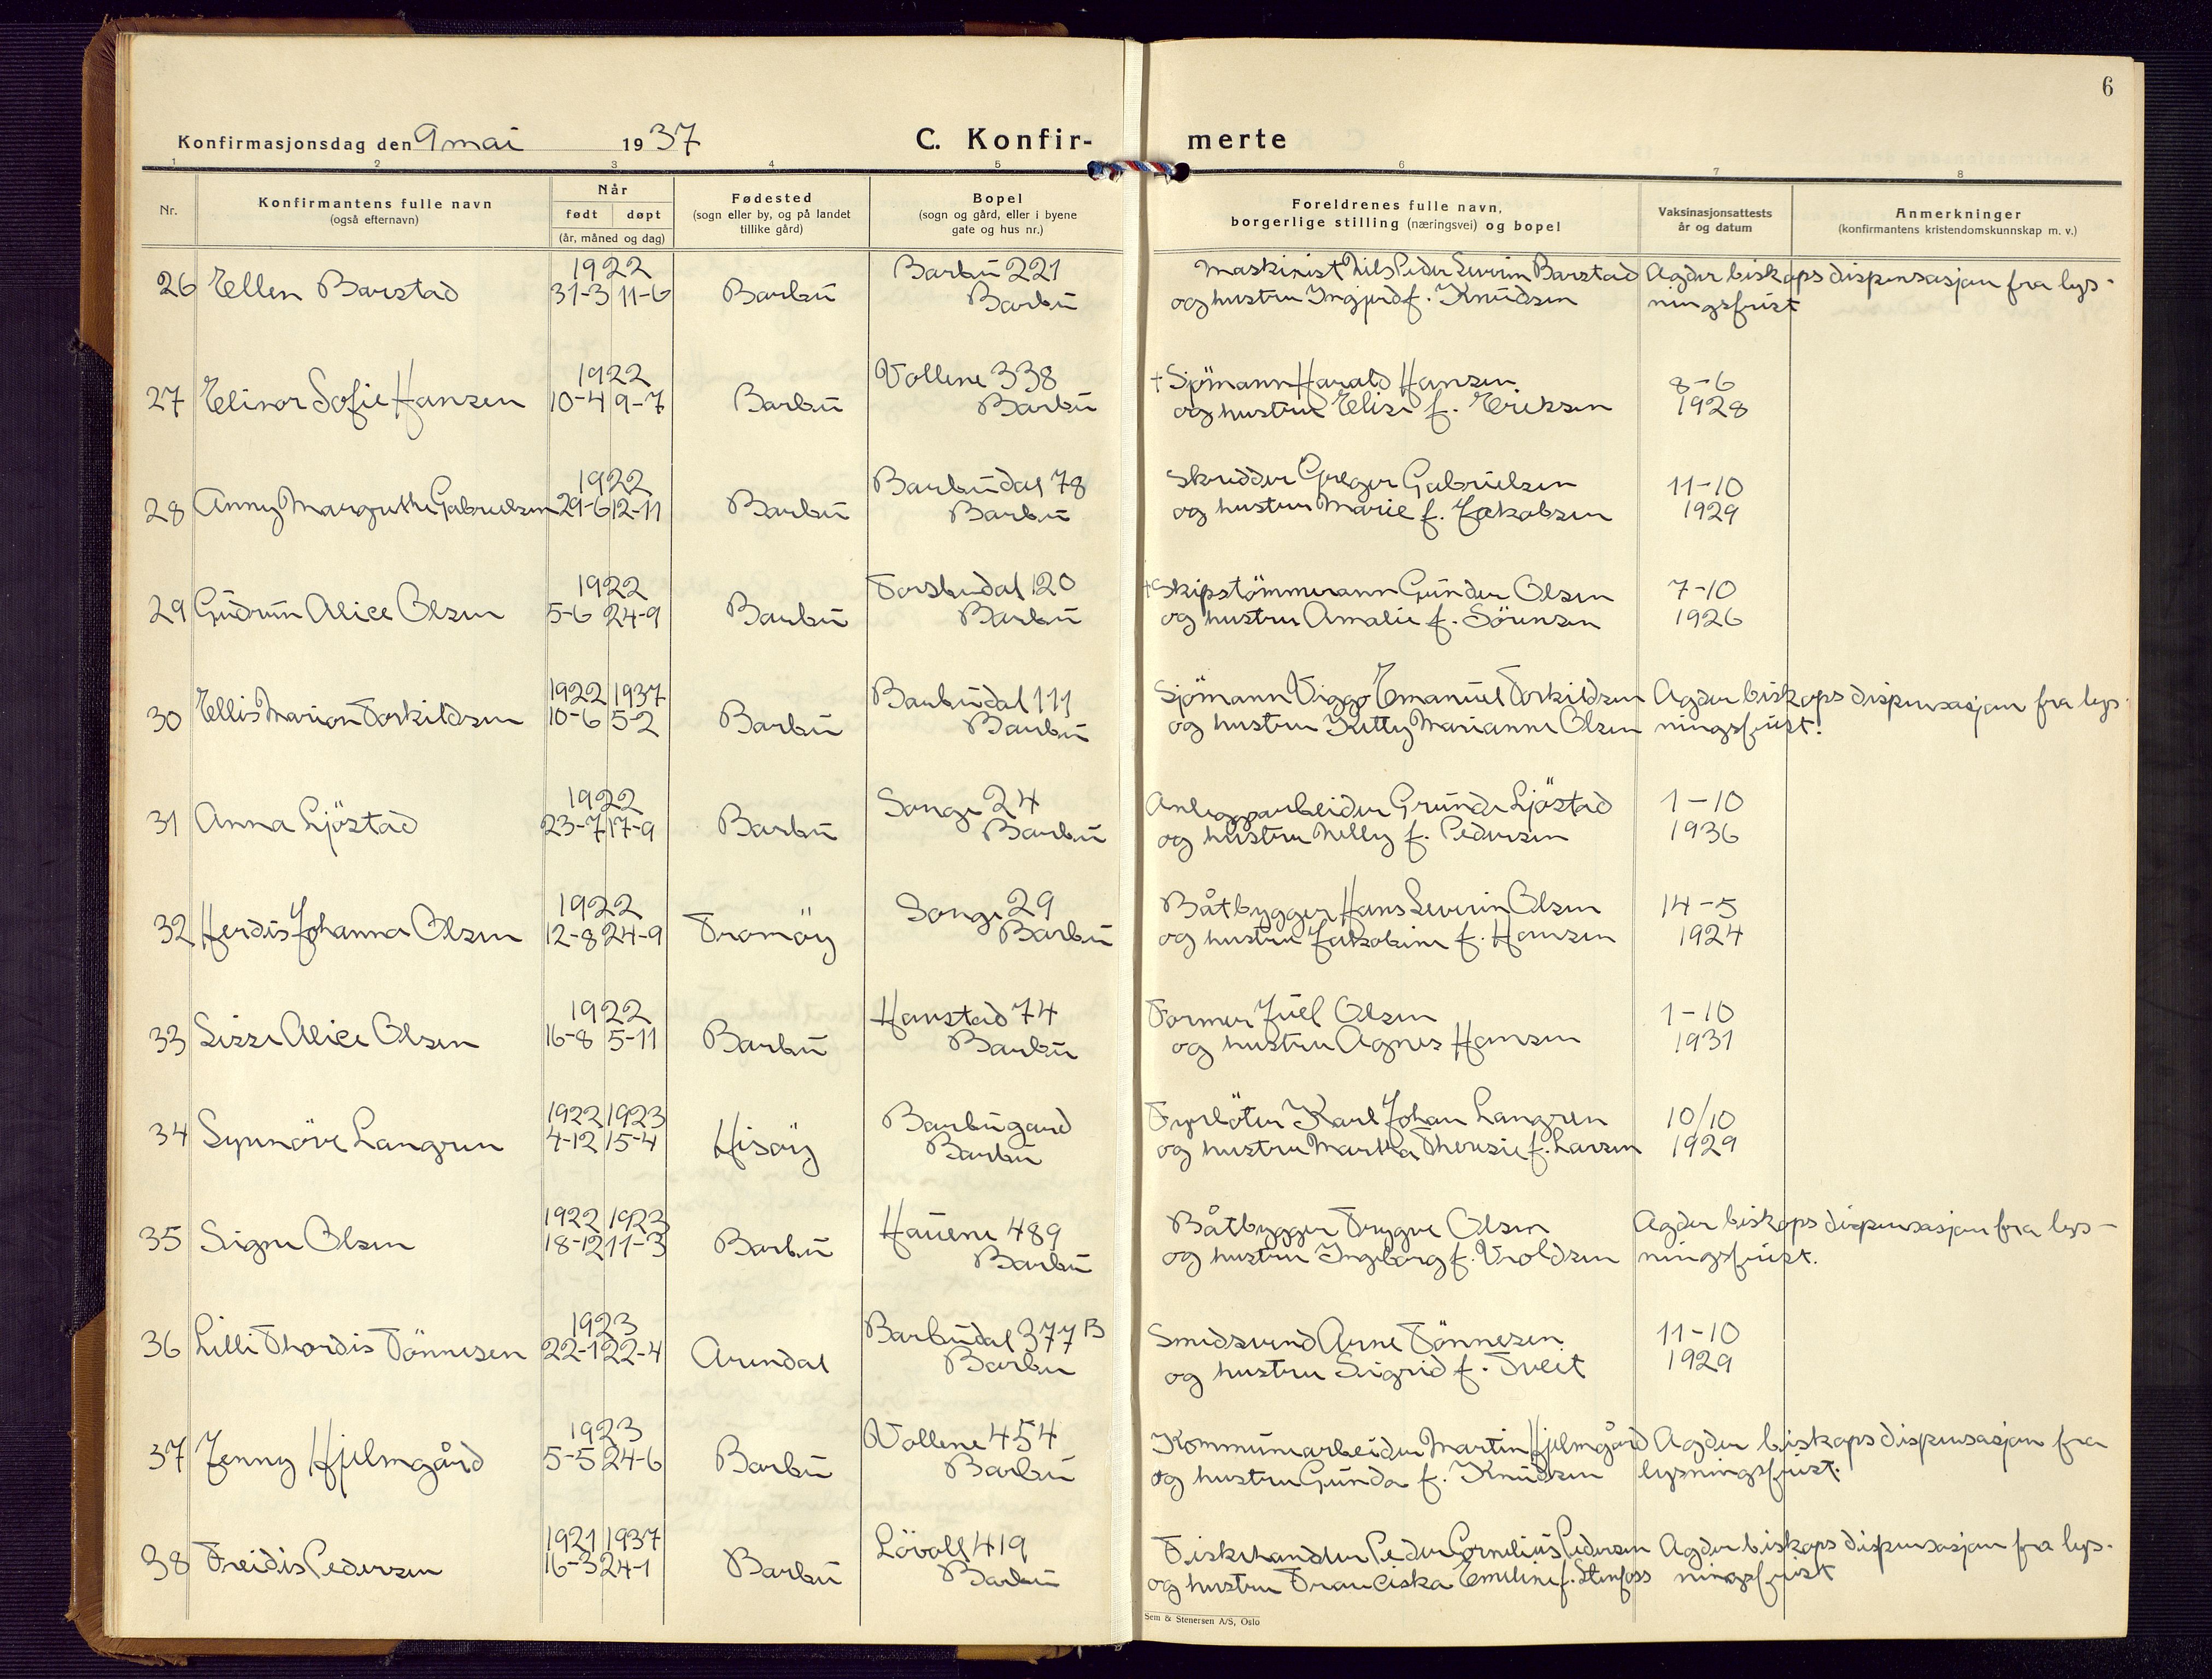 6
Konfirmasjonsdag den 9 mai 1937
C. Konfir-
merte
1 2 3 4 5 6 7 8
Nr.
Konfirmantens fulle navn
(også efternavn)
Når
født døpt
(år, måned og dag)
Fødested
(sogn eller by, og på landet
tillike gård)
Bopel
(sogn og gård, eller i byene
gate og hus nr.)
Foreldrenes fulle navn,
borgerlige stilling (næringsvei) og bopel
Vaksinasjonsattests
år og datum
Anmerkninger
(konfirmantens kristendomskunnskap m. v.)
1922 Barbu 221 Maskinist Nils Peder Severin Barstad Agder biskops dispensasjon fra lys-
26 Ellen Barstad 31-3 11-6 Barbu Barbu og hustru Ingjerd f. Knudsen ningsfrist
1922 Vollene 338 + Sjömann Harald Hansen 8-6
27 Elinor Sofie Hansen 10-4 9-7 Barbu Barbu og hustru Elise f. Eriksen 1928
1922 Barbudal 78 Skredder Greger Gabrielsen 11-10
28 Anny Margrethe Gabrielsen 29-6 12-11 Barbu Barbu og hustru Marie f. Jakobsen 1929
1922 Torsbudal 120 + Skipstömmermann Gunder Olsen 7-10
29 Gudrun Alice Olsen 5-6 24-9 Barbu Barbu og hustru Amalie f. Sörensen 1926
1922 1937 Barbudal 111 Sjömann Viggo Emanuel Torkildsen Agder biskops dispensasjon fra lys-
30 Ellis Marion Torkildsen 10-6 5-2 Barbu Barbu og hustru Kitty Marianne Olsen ningsfrist.
1922 Songe 24 Anleggsarbeider Grunde Ljöstad 1-10
31 Anna Ljöstad 23-7 17-9 Barbu Barbu og hustru Nelly f. Pedersen 1936
1922 Songe 29 Båtbygger Hans Severin Olsen 14-5
32 Herdis Johanna Olsen 12-8 24-9 Tromöy Barbu og hustru Jakobine f. Hansen 1924
1922 Harstad 74 Former Juel Olsen 1-10
33 Sissi Alice Olsen 16-8 5-11 Barbu Barbu og hustru Agnes Hansen 1931
1922 1923 Barbugard Fyrböter Karl Johan Langren 10/10
34 Synnöve Langren 4-12 15-4 Hisöy Barbu og hustru Martha Theresie f. Larsen 1929
1922 1923 Hauene 489 Båtbygger Trygve Olsen Agder biskops dispensasjon fra lys-
35 Signe Olsen 18-12 11-3 Barbu Barbu og hustru Ingeborg f. Vroldsen ningsfrist.
1923 Barbudal 377 B Smedsvend Arne Tönnesen 11-10
36 Lilli Thordis Tönnesen 22-1 22-4 Arendal Barbu og hustru Sigrid f. Tveit 1929
1923 Vollene 454 Kommunearbeider Martin Hjelmgård Agder biskops dispensasjon fra
37 Jenny Hjelmgård 5-5 24-6 Barbu Barbu og hustru Gunda f. Knudsen lysningsfrist.
1921 1937 Lövoll 419 Fiskehandler Peder Cornelius Pedersen Agder biskops dispensasjon fra lys-
38 Freidis Pedersen 16-3 24-1 Barbu Barbu og hustru Franciska Emeline f. Stenfoss ningsfrist
Sem & Stenersen A/S, Oslo